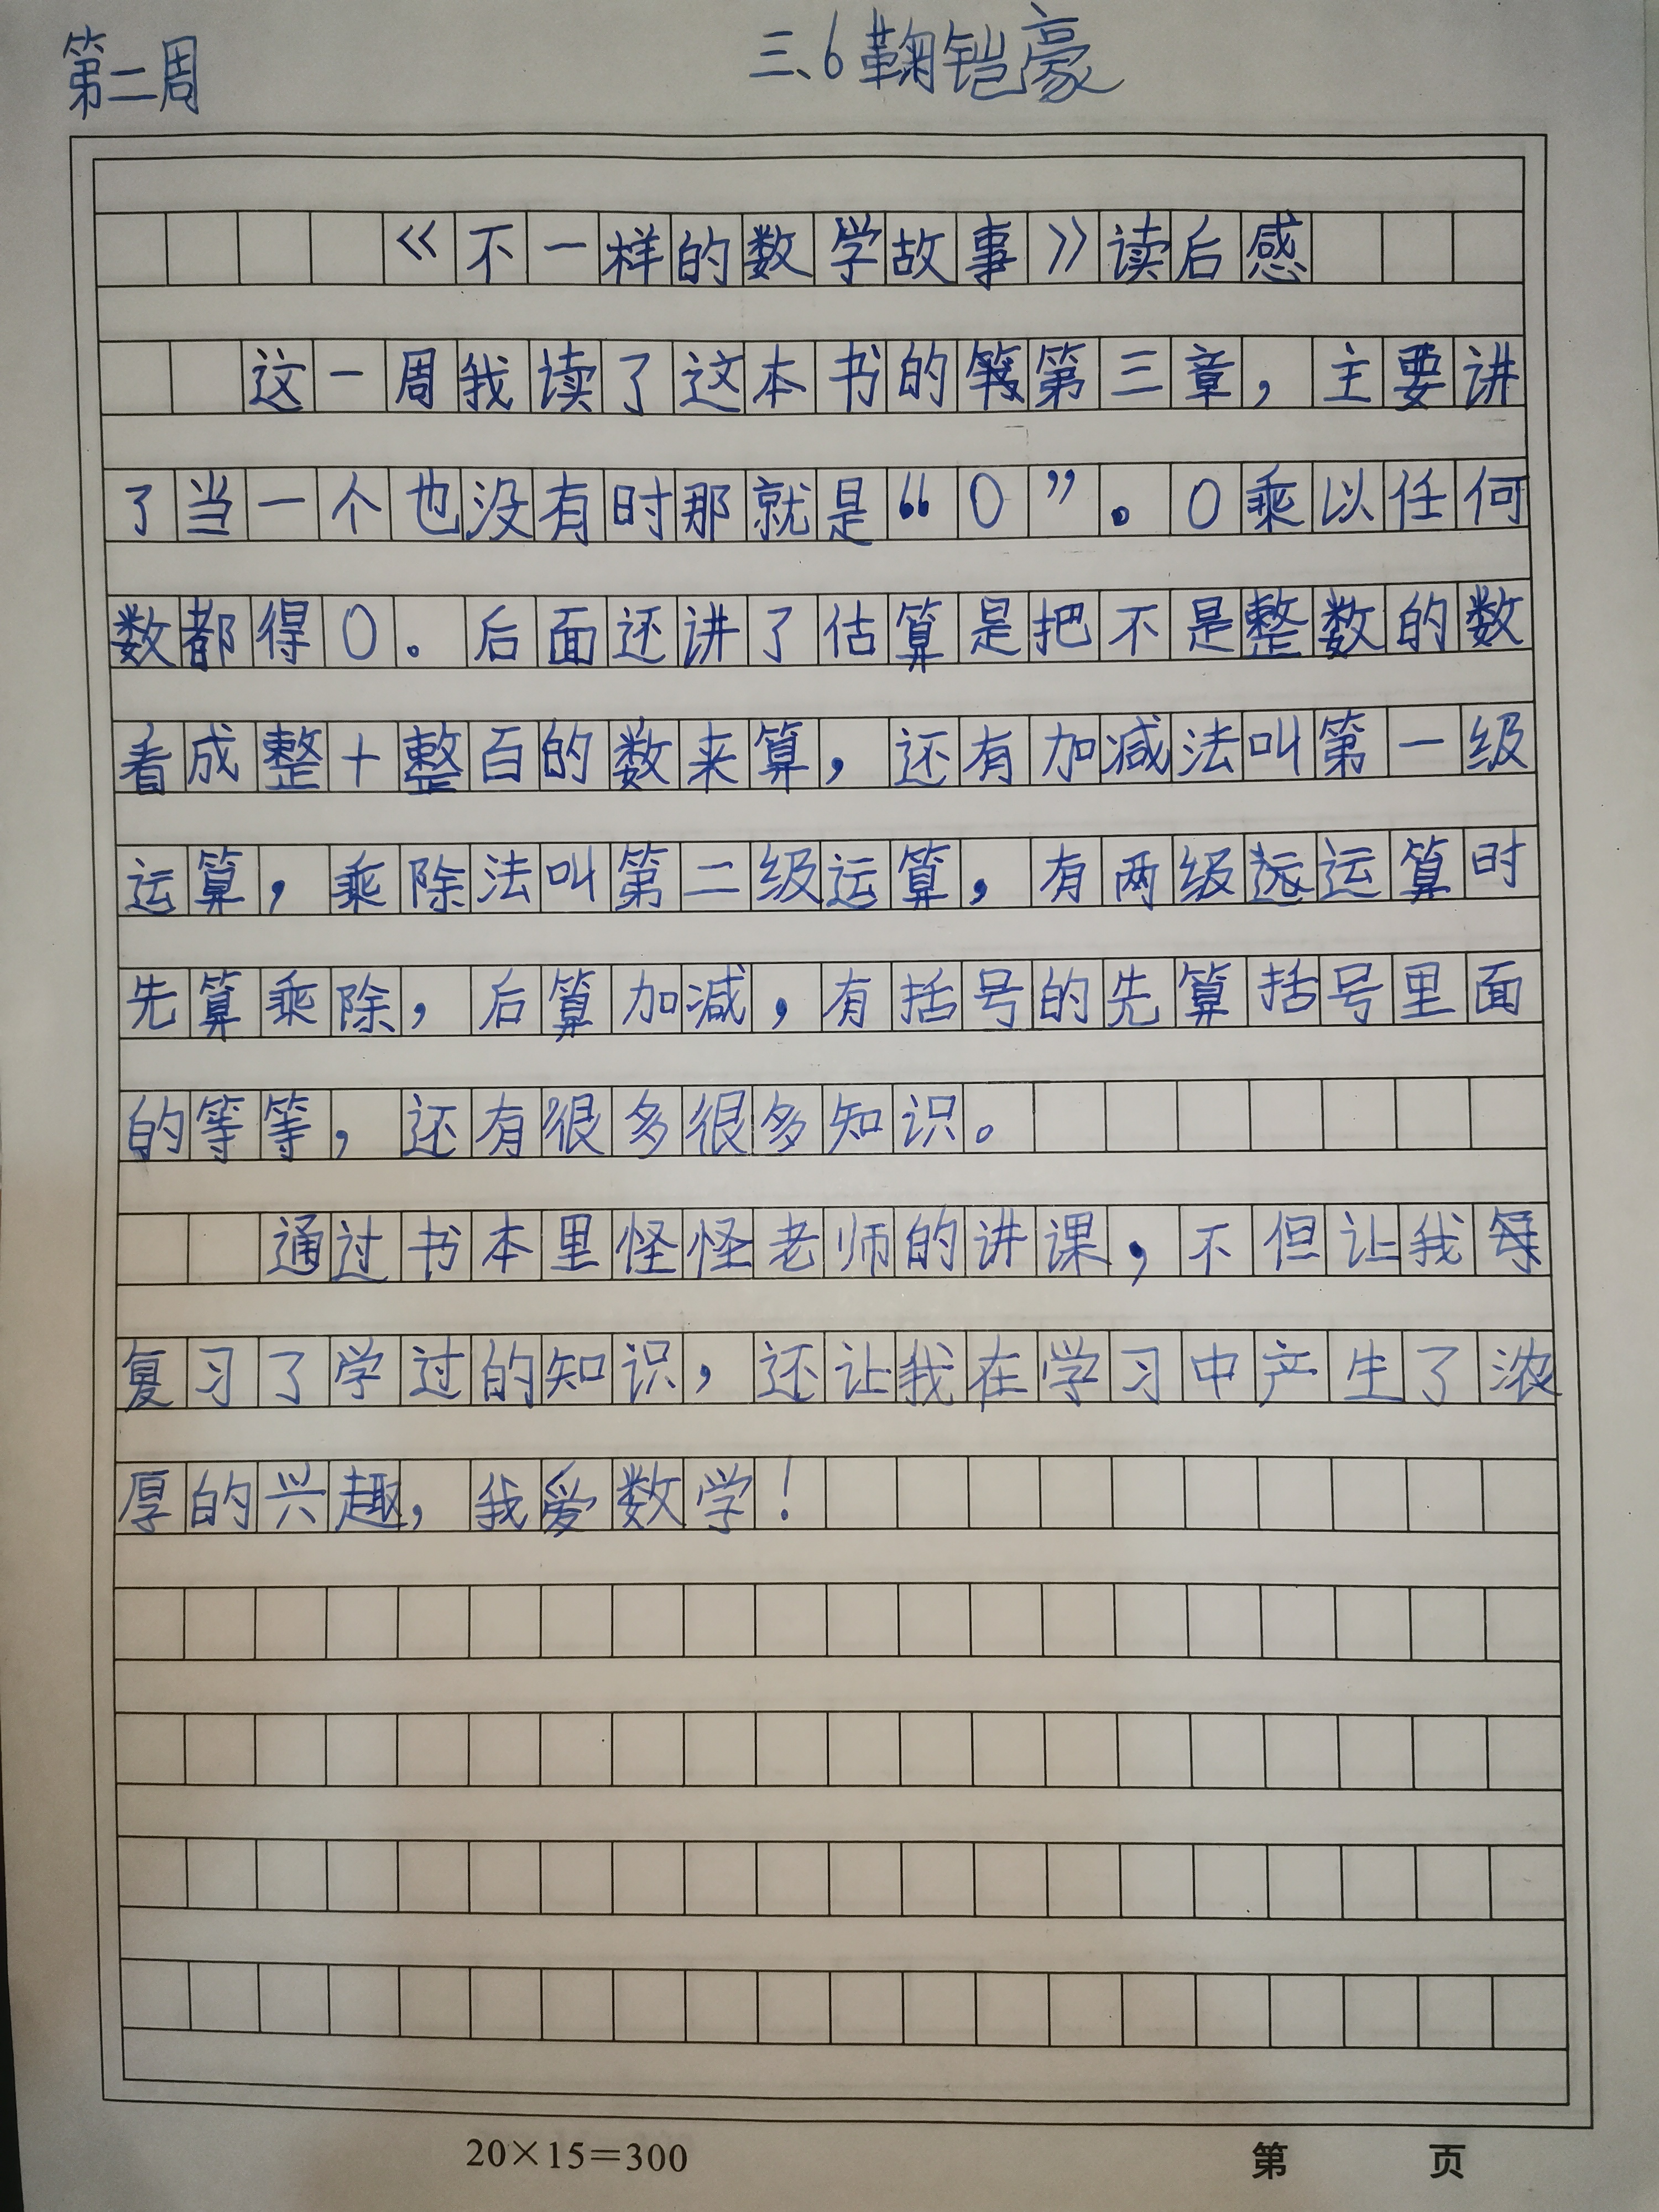 第二周
三、6 鞠铠豪
《不一样的数学故事》读后感
这一周我读了这本书的第三章，主要讲
了当一个也没有时那就是“0”。0乘以任何
数都得0。后面还讲了估算是把不是整数的数
看成整十整百的数来算，还有加减法叫第一级
运算，乘除法叫第二级运算，有两级运算时
先算乘除，后算加减，有括号的先算括号里面
的等等，还有很多很多知识。
通过书本里怪怪老师的讲课，不但让我
复习了学过的知识，还让我在学习中产生了浓
厚的兴趣，我爱数学！
20×15=300
第 页